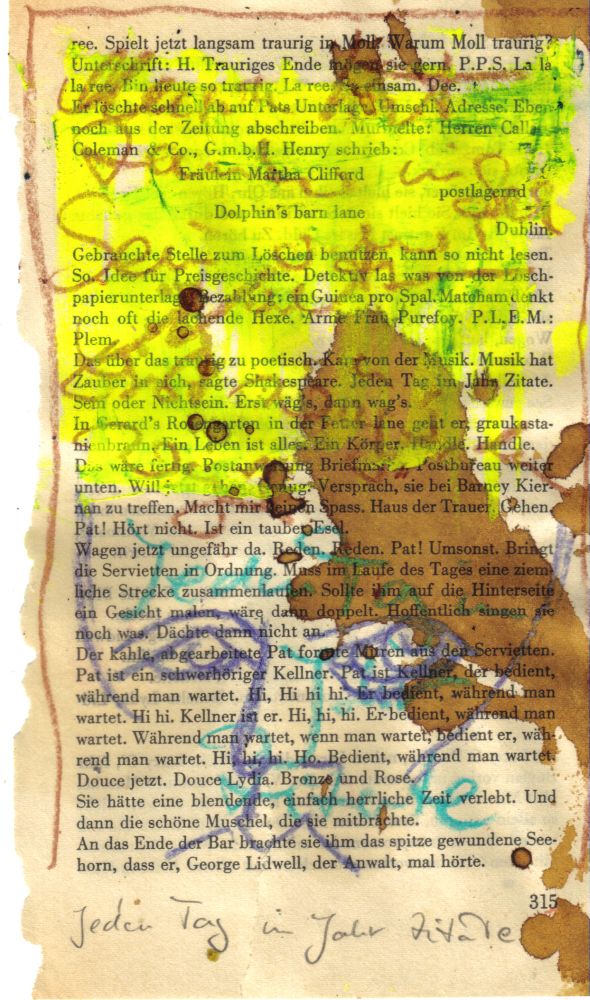 ree. Spielt jetzt langsam traurig in Moll. Warum Moll traurig?
Unterschrift: H. Trauriges Ende mögen sie gern. P.P.S. La la
la ree. Bin heute so traurig. La ree. So einsam. Dee.
Er löschte schnell ab auf Pats Unterlage. Umschl. Adresse. Eben
noch aus der Zeitung abschreiben. Murmelte: Herren Call
Coleman & Co., G.m.b.H. Henry schrieb:
Fräulein Martha Clifford
postlagernd
Dolphin's barn lane
Dublin.
Gebrauchte Stelle zum Löschen benutzen, kann so nicht lesen.
So. Idee für Preisgeschichte. Detektiv las was von der Lösch-
papierunterlage. Bezahlung: ein Guinea pro Spal. Matcham denkt
noch oft die lachende Hexe. Arme Frau Purefoy. P.L.E.M.:
Plem.
Das über das traurig zu poetisch. Kam von der Musik. Musik hat
Zauber in sich, sagte Shakespeare. Jeden Tag im Jahr Zitate.
Sein oder Nichtsein. Erst wäg's, dann wag's.
In Gerard's Rosengarten in der Fetter lane geht er, graukasta-
nienbraun. Ein Leben ist alles. Ein Körper. Handle. Handle.
Das wäre fertig. Postanweisung Briefmarke. Postbureau weiter
unten. Will jetzt gehen. Genug. Versprach, sie bei Barney Kier-
nan zu treffen. Macht mir keinen Spass. Haus der Trauer. Gehen.
Pat! Hört nicht. Ist ein tauber Esel.
Wagen jetzt ungefähr da. Reden. Reden. Pat! Umsonst. Bringt
die Servietten in Ordnung. Muss im Laufe des Tages eine ziem-
liche Strecke zusammenlaufen. Sollte ihm auf die Hinterseite
ein Gesicht malen, wäre dann doppelt. Hoffentlich singen sie
noch was. Dächte dann nicht an.
Der kahle, abgearbeitete Pat formte Mitren aus den Servietten.
Pat ist ein schwerhöriger Kellner. Pat ist Kellner, der bedient,
während man wartet. Hi, Hi hi hi. Er bedient, während man
wartet. Hi hi. Kellner ist er. Hi, hi, hi. Er bedient, während man
wartet. Während man wartet, wenn man wartet, bedient er, wäh-
rend man wartet. Hi, hi, hi. Ho. Bedient, während man wartet.
Douce jetzt. Douce Lydia. Bronze und Rose.
Sie hätte eine blendende, einfach herrliche Zeit verlebt. Und
dann die schöne Muschel, die sie mitbrachte.
An das Ende der Bar brachte sie ihm das spitze gewundene See-
horn, dass er, George Lidwell, der Anwalt, mal hörte.
315
Jeden Tag im Jahr Zitate